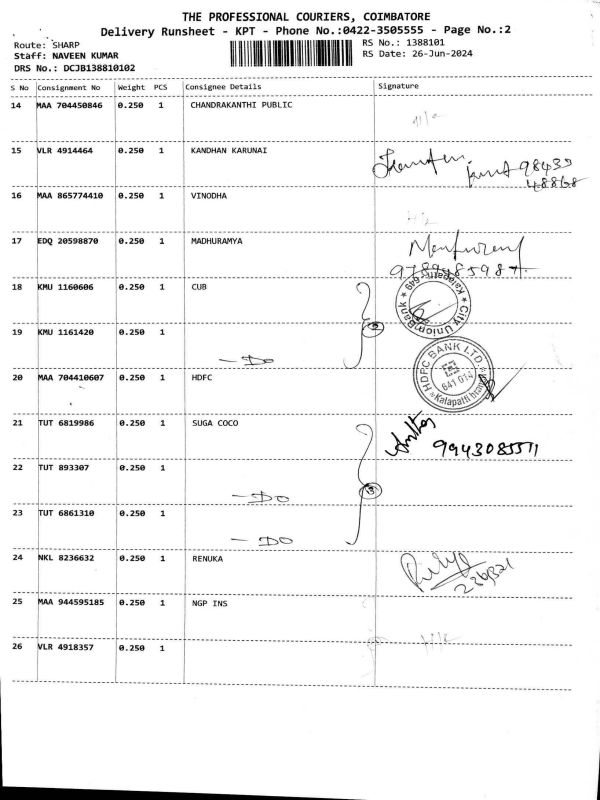 THE PROFESSIONAL COURIERS, COIMBATORE
Delivery Runsheet - KPT - Phone No.:0422-3505555 - Page No.:2
Route: SHARP
RS No.: 1388101
Staff: NAVEEN KUMAR
RS Date: 26-Jun-2024
DRS No.: DCJB138810102
S No Consignment No Weight PCS Consignee Details Signature
14 MAA 704450846 0.250 1 CHANDRAKANTHI PUBLIC
15 VLR 4914464 0.250 1 KANDHAN KARUNAI
98439
48868
16 MAA 865774410 0.250 1 VINODHA
17 EDQ 20598870 0.250 1 MADHURAMYA
18 KMU 1160606 0.250 1 CUB
City Union Bank * Kalapatti 649 *
19 KMU 1161420 0.250 1
- DO
20 MAA 704410607 0.250 1 HDFC
HDFC BANK LTD.
641 014
Kalapatti branch
21 TUT 6819986 0.250 1 SUGA COCO
22 TUT 893307 0.250 1
- DO
23 TUT 6861310 0.250 1
- DO
24 NKL 8236632 0.250 1 RENUKA
25 MAA 944595185 0.250 1 NGP INS
26 VLR 4918357 0.250 1